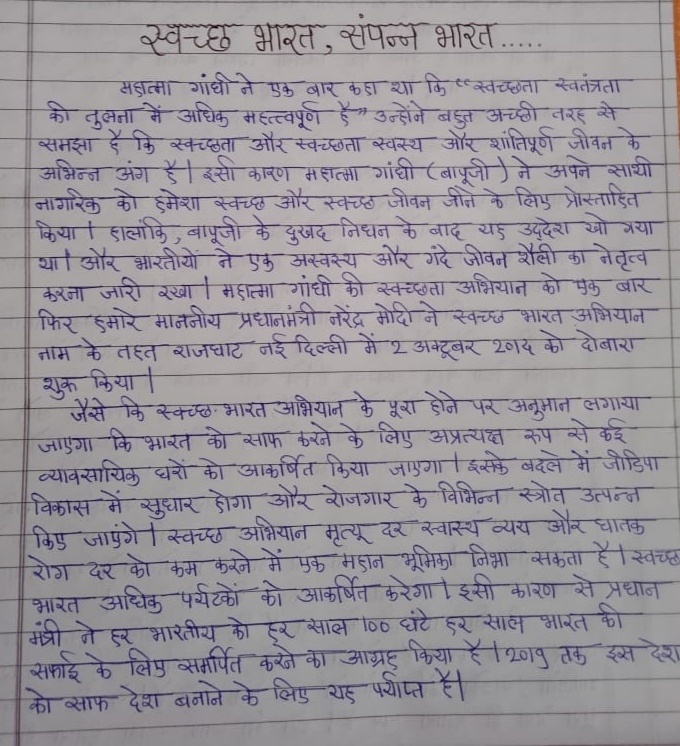 स्वच्छ भारत, संपन्न भारत.....
महात्मा गांधी ने एक बार कहा था कि "स्वच्छता स्वतंत्रता
की तुलना में अधिक महत्त्वपूर्ण है" उन्होंने बहुत अच्छी तरह से
समझा है कि स्वच्छता और स्वच्छता स्वस्थ और शांतिपूर्ण जीवन के
अभिन्न अंग है। इसी कारण महात्मा गांधी (बापूजी) ने अपने साथी
नागरिक को हमेशा स्वच्छ और स्वच्छ जीवन जीने के लिए प्रोस्ताहित
किया। हालांकि, बापूजी के दुखद निधन के बाद यह उद्देश खो गया
था। और भारतीयों ने एक अस्वस्थ और गंदे जीवन शैली का नेतृत्व
करना जारी रखा। महात्मा गांधी की स्वच्छता अभियान को एक बार
फिर हमारे माननीय प्रधानमंत्री नरेंद्र मोदी ने स्वच्छ भारत अभियान
नाम के तहत राजघाट नई दिल्ली में 2 अक्टूबर को दोबारा
शुरू किया।
जैसे कि स्वच्छ भारत अभियान के पूरा होने पर अनुमान लगाया
जाएगा कि भारत को साफ करने के लिए अप्रत्यक्ष रूप से कई
व्यावसायिक घरों को आकर्षित किया जाएगा। इसके बदले में
विकास में सुधार होगा और रोजगार के विभिन्न स्त्रोत उत्पन्न
किए जाएंगे। स्वच्छ अभियान मृत्यू दर स्वास्थ्य व्यय और घातक
रोग दर को कम करने में एक महान भूमिका निभा सकता है। स्वच्छ
भारत अधिक पर्यटकों को आकर्षित करेगा। इसी कारण से प्रधान
मंत्री ने हर भारतीय को हर साल 100 घंटे हर साल भारत की
सफाई के लिए समर्पित करने का आग्रह किया है। 2019 तक इस देश
को साफ देश बनाने के लिए यह पर्याप्त है।